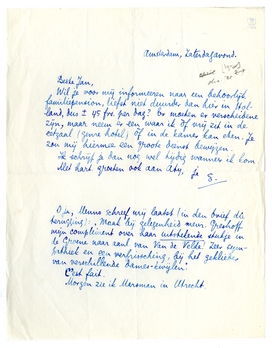 Amsterdam, Zaterdagavond.
Beste Jan,
Wil je voor mij informeeren naar een behoorlijk
familiepension, liefst niet duurder dan hier in Hol-
land, dus ± 45 fr. per dag? Er moeten er verscheidene
zijn, maar neem er een waar ik of vrij zit in de
eetzaal (genre hotel) of in de kamer kan eten. Je
zou mij hiermee een groote dienst bewijzen.
Ik schrijf je dan nog wel bijdag wanneer ik kom
Met hart. groeten ook aan Aty, je
E.
O ja, Menno schreef mij laatst (in den brief
): Maak bij gelegenheid mevr. Greshoff
mijn compliment over haar uitstekende stukje in
de Groene naar aanl. van Van de Velde. Zeer
en een verfrissching, bij het gekliets
van verschillende dames-
C'est fait.
Morgen zie ik Marsman in Utrecht.